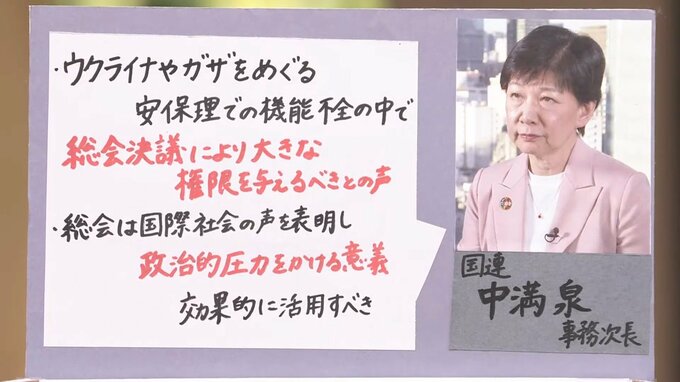 ・ウクライナやガザをめぐる
安保理での機能不全の中で
総会決議により大きな
権限を与えるべきとの声
・総会は国際社会の声を表明し
政治的圧力をかける意義
効果的に活用すべき
国連
中満泉
事務次長